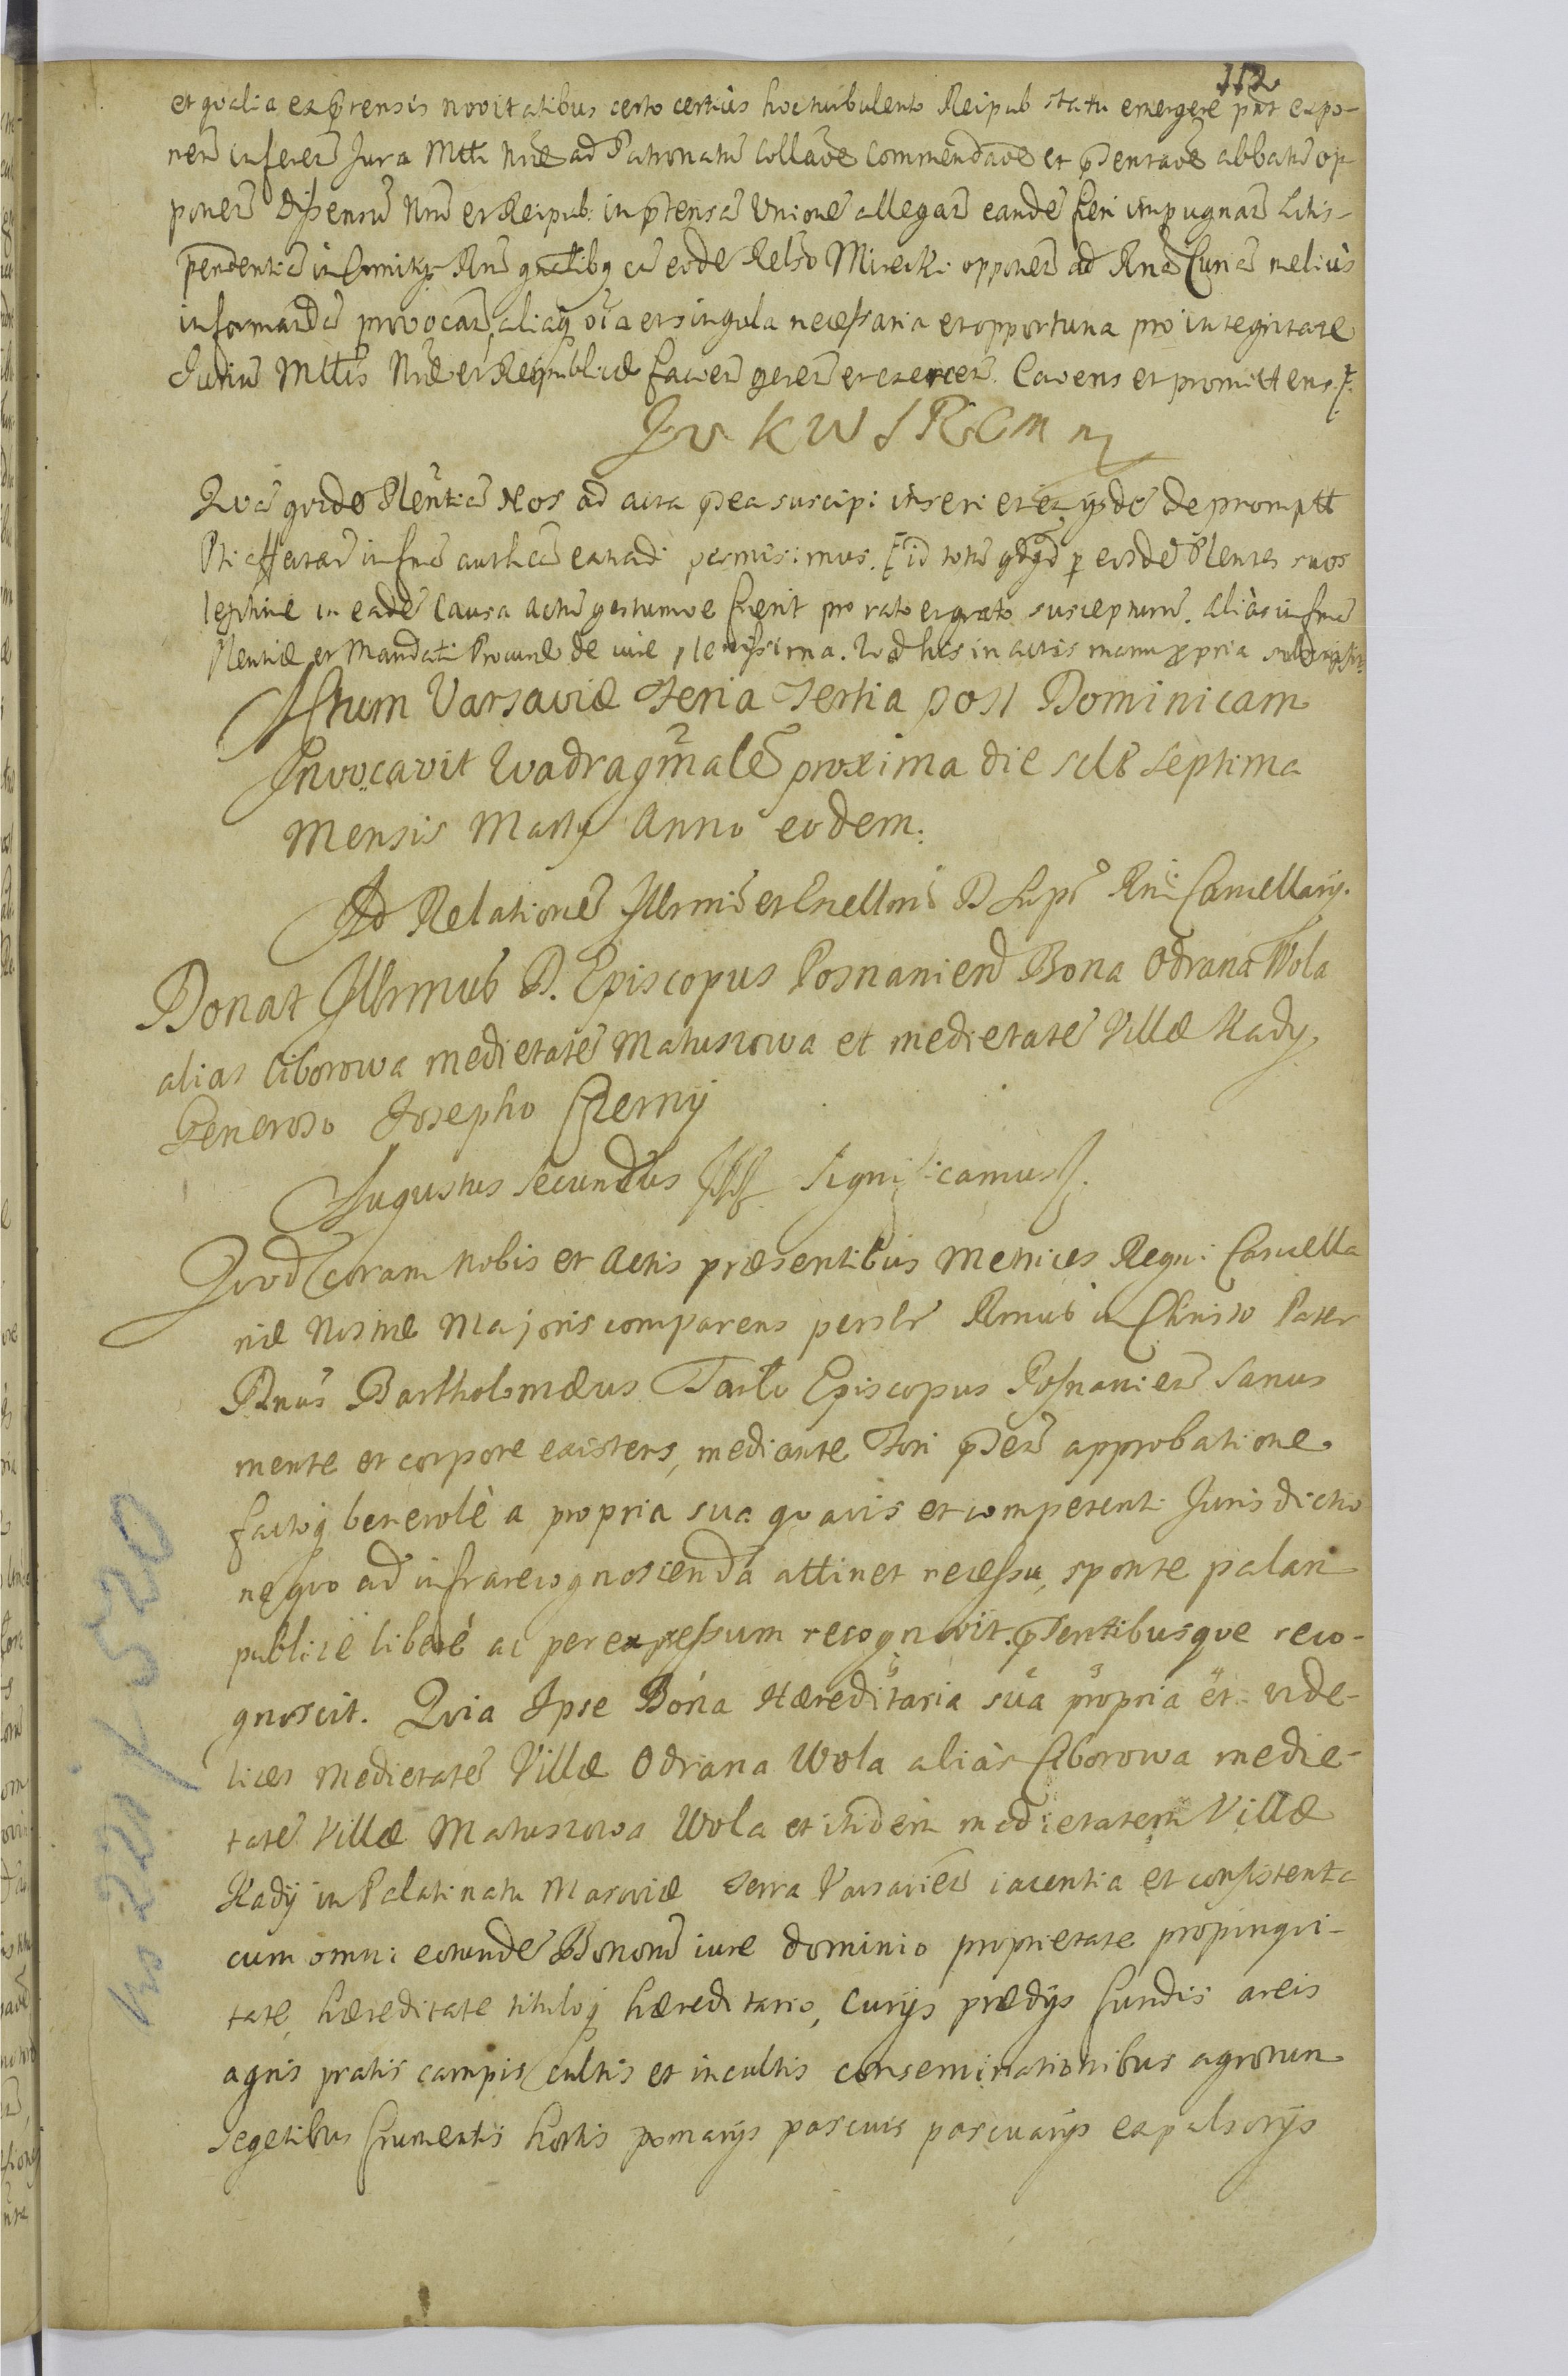 112
et qvalia ex prensis novitatibus certo certius hoc turbulento Reipub statu emergere pñt expo-
nen inferen Jura Mtti Nræ ad Patronatu Collaõe Commendaõe et pñtaõe abbatu op-
ponen Dissensu Nrm et Reipub: in ptensa Unione allegan eande fieri impugnan Litis-
pendentia in Comitijs Rni gnalibq cu eode Relso Mirecki opponen ad Rna Curia melius
informanda provocan, aliaq oia et singula necessaria et opportuna pro integritate
Juriu Mttis Nræ et Reipublicæ facien geren et exercen. Cavens et promittens.
K W
Qva qvide Plentia Nos ad acta psea suscipi inseri et ex ijsde depromptt
Pti affectan in fma auth extradi permisimus. id totu qdqd p eosde Plentes suos
legitime in eade Causa actu gestumve fuerit pro rato et grato suscepturu. alias in fma
Plentiæ et Mandati Procurae de iure plenissima. Qvod his in actis manu ppria subscripsit.
Actum Varsaviæ Feria Tertia post Dominicam
Invocavit Qvadragmale proxima die scilt septima
Mensis Martij Anno eodem.
Ad Relatione Illrmi et Excellmi D Supr Rni Cancellarij.
Donat Illrmus D. Episcopus Posnanien Bona Odrana Wola
alias Ciborowa medietate Matuszowa et medietate Villæ Kady.
Generoso Josepho Czerny
Augustus Secundus Significamus.
Qvod coram Nobis et Actis præsentibus Metrices Regni Cancella
riæ Nostræ Majoris comparens persler Rmus in Christo Pater
Dnus Bartholomæus Tarlo Episcopus Posnanien Sanus
mente et corpore existens, mediante Fori psen approbatione
factoq benevolè a propria sua qvavis et competenti Jurisdictio
ne qvo ad infrarecognoscenda attinet recessu, sponte palan
publicè liberè ac per expressum recognovit. pntibusque reco-
gnoscit. Qvia Ipse Bona Hæreditaria sua propria et vide-
licet Medietate Villæ Odrana Wola alias Ciborowa medie-
tate Villæ Matuszowa Wola et itidem medietatem Villæ
Kady in Palatinatu Masoviæ Terra Varsavien iacentia et consistentia
cum omni eorunde Bonorum iure dominio proprietate propinqvi-
tate, hæreditate tituloq hæreditario, curijs prædijs fundis areis
agris pratis campis cultis et incultis conseminationibus agrorum
Segetibus frumentis hortis pomarijs pascuis pascuarijs expulsorijs
No 220 k 520